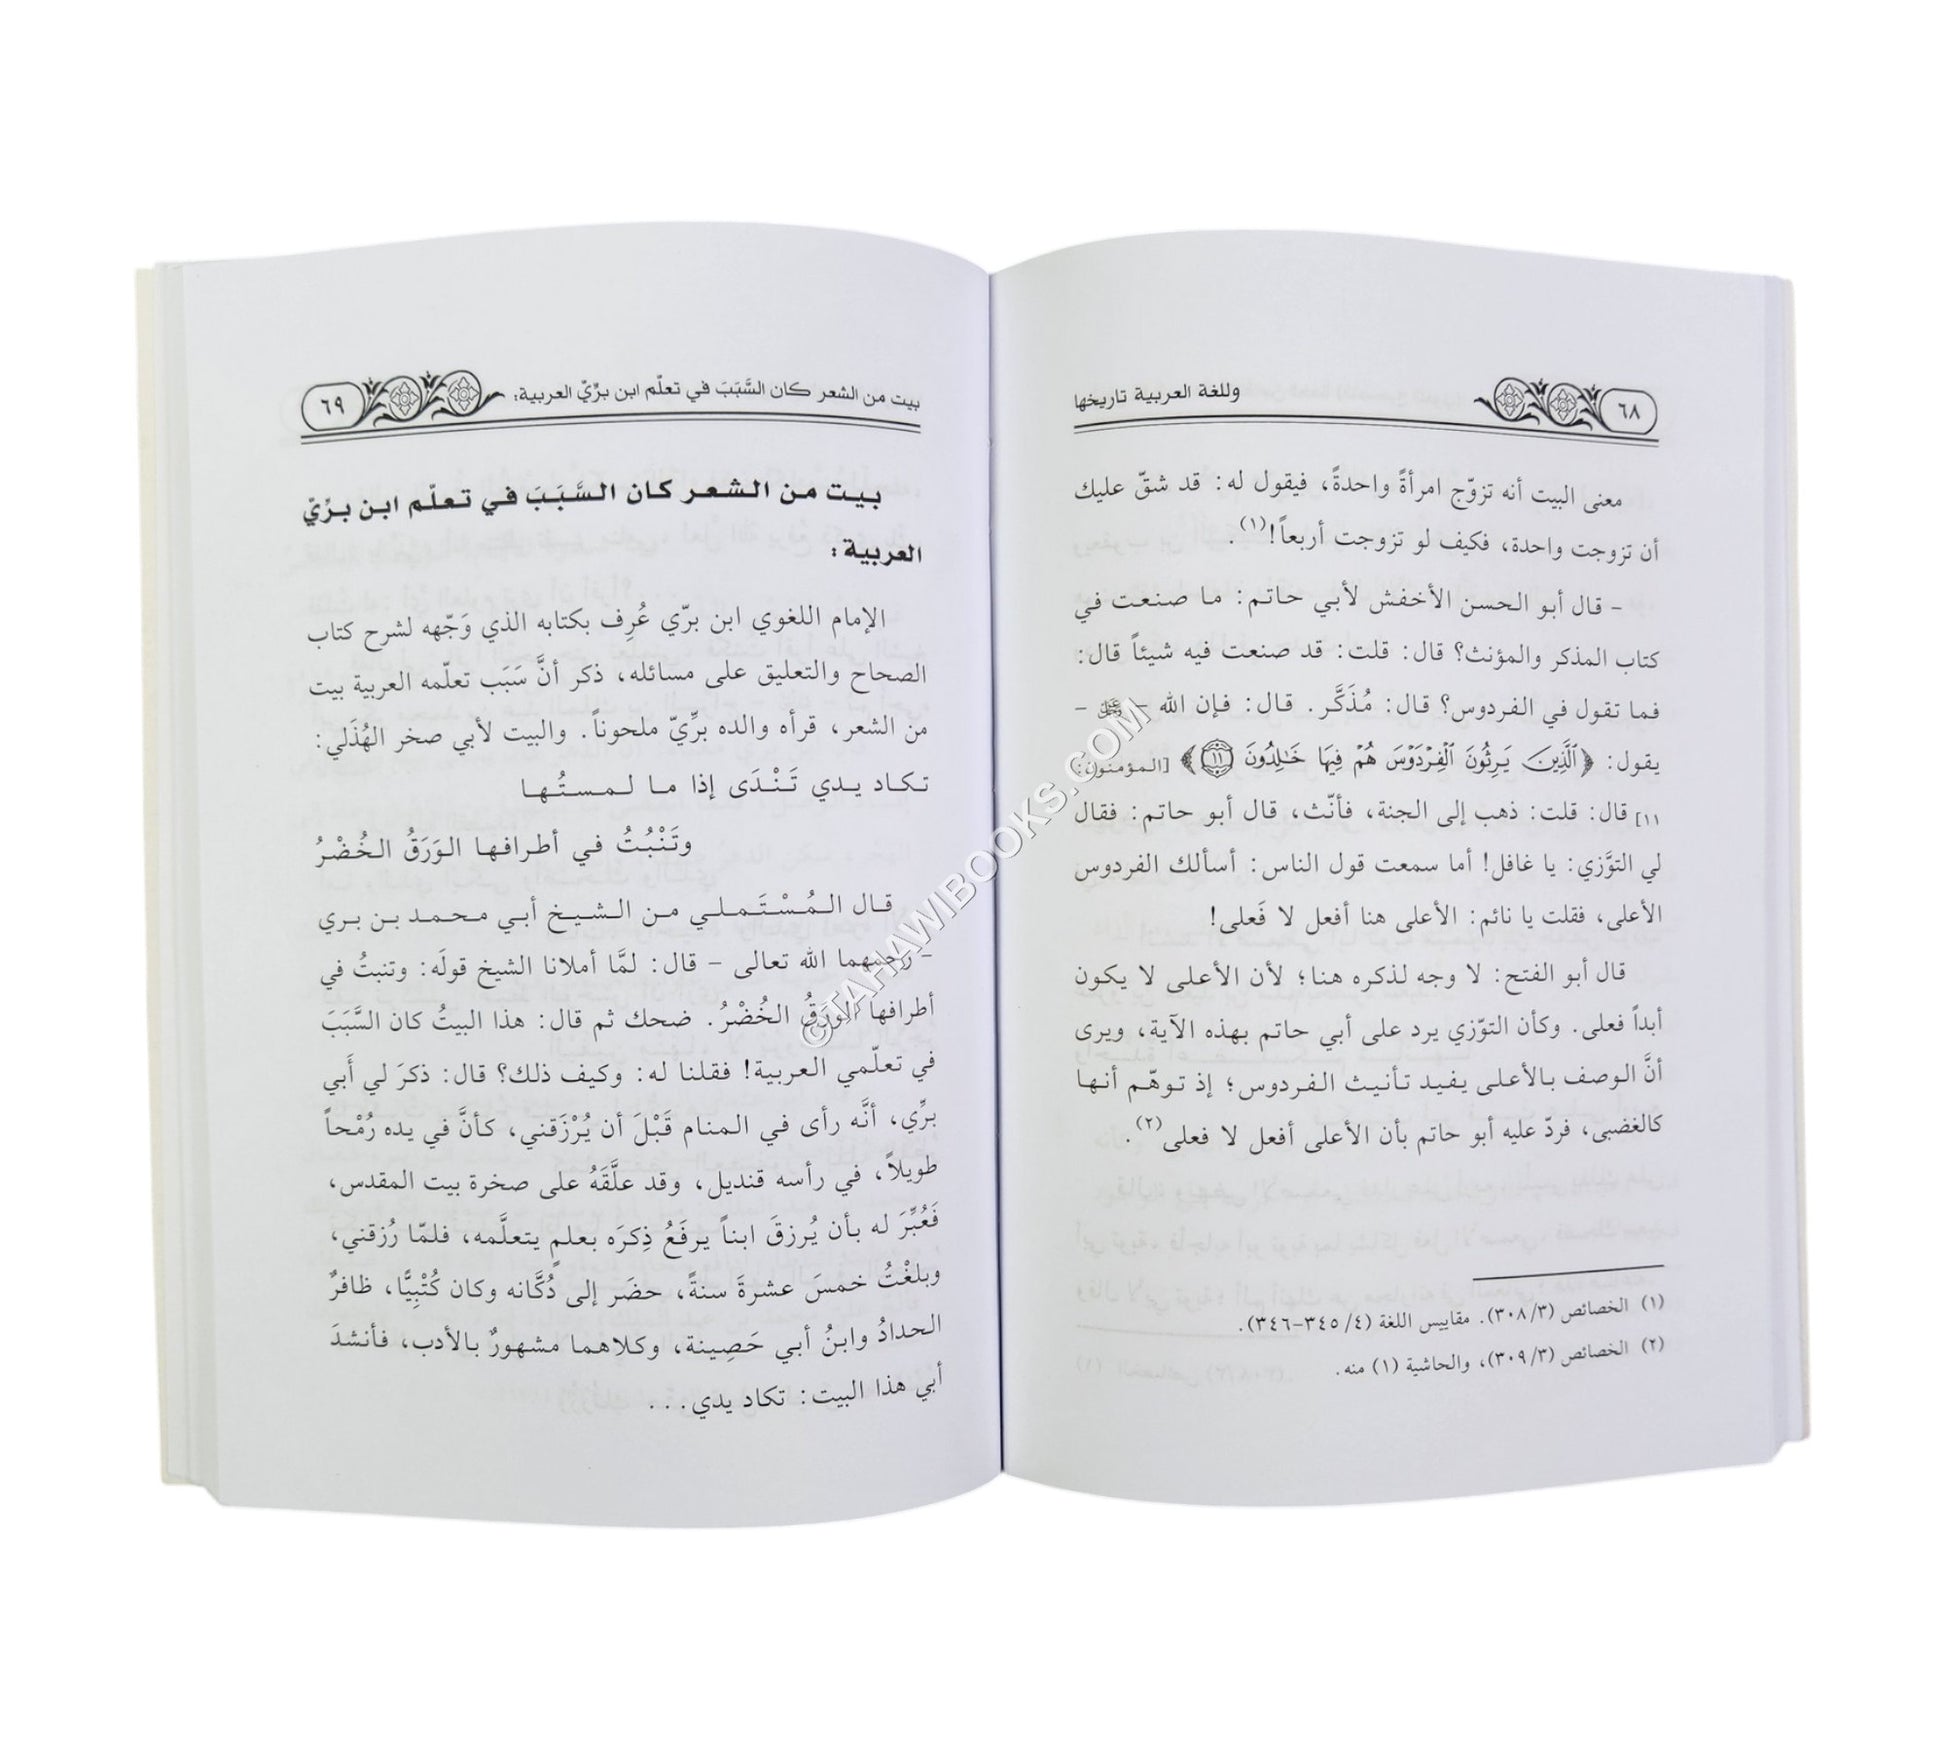 ٦٨
وللغة العربية تاريخها
معنى البيت أنه تزوّج امرأةً واحدةً، فيقول له: قد شقّ عليك
أن تزوجت واحدة، فكيف لو تزوجت أربعاً!(١).
- قال أبو الحسن الأخفش لأبي حاتم: ما صنعت في
كتاب المذكر والمؤنث؟ قال: قلت: قد صنعت فيه شيئاً قال:
فما تقول في الفردوس؟ قال: مُذَكَّر. قال: فإن الله - ﷿ -
يقول: ﴿ٱلَّذِينَ يَرِثُونَ ٱلْفِرْدَوْسَ هُمْ فِيهَا خَـٰلِدُونَ ١١﴾ [المؤمنون:
١١] قال: قلت: ذهب إلى الجنة، فأنّث، قال أبو حاتم: فقال
لي التوَّزي: يا غافل! أما سمعت قول الناس: أسألك الفردوس
الأعلى، فقلت يا نائم: الأعلى هنا أفعل لا فَعلى!
قال أبو الفتح: لا وجه لذكره هنا؛ لأن الأعلى لا يكون
أبداً فعلى. وكأن التوّزي يرد على أبي حاتم بهذه الآية، ويرى
أنَّ الوصف بالأعلى يفيد تأنيث الفردوس؛ إذ توهّم أنها
كالغضبى، فردّ عليه أبو حاتم بأن الأعلى أفعل لا فعلى(٢).
(١) الخصائص (٣٠٨/٣). مقاييس اللغة (٤/ ٣٤٥-٣٤٦).
(٢) الخصائص (٣٠٩/٣)، والحاشية (١) منه.
بيت من الشعر كان السَّبَبَ في تعلّم ابن برّيّ العربية:
٦٩
بيت من الشعر كان السَّبَبَ في تعلّم ابن برّيّ
العربية:
الإمام اللغوي ابن برّي عُرِف بكتابه الذي وَجّهه لشرح كتاب
الصحاح والتعليق على مسائله، ذكر أنَّ سَبَب تعلّمه العربية بيت
من الشعر، قرأه والده برِّيّ ملحوناً. والبيت لأبي صخر الهُذَلي:
تكاد يدي تَنْدَى إذا ما لمستُها
وتَنْبُتُ في أطرافها الوَرَقُ الخُضْرُ
قال المُسْتَملي من الشيخ أبي محمد بن بري
- رحمهما الله تعالى - قال: لمَّا أملانا الشيخ قولَه: وتنبتُ في
أطرافها الوَرَقُ الخُضْرُ. ضحك ثم قال: هذا البيتُ كان السَّبَبَ
في تعلّمي العربية! فقلنا له: وكيف ذلك؟ قال: ذكرَ لي أَبي
برِّي، أنَّه رأى في المنام قَبْلَ أن يُرْزَقني، كأنَّ في يده رُمْحاً
طويلاً، في رأسه قنديل، وقد علَّقَهُ على صخرة بيت المقدس،
فَعُبِّرَ له بأن يُرزقَ ابناً يرفَعُ ذِكرَه بعلمٍ يتعلَّمه، فلمّا رُزقني،
وبلغْتُ خمسَ عشرةَ سنةً، حضَر إلى دُكَّانه وكان كُتْبِيًّا، ظافرٌ
الحدادُ وابنُ أبي حَصِينة، وكلاهما مشهورٌ بالأدب، فأنشدَ
أبي هذا البيت: تكاد يدي...
©TAHAWIBOOKS.COM